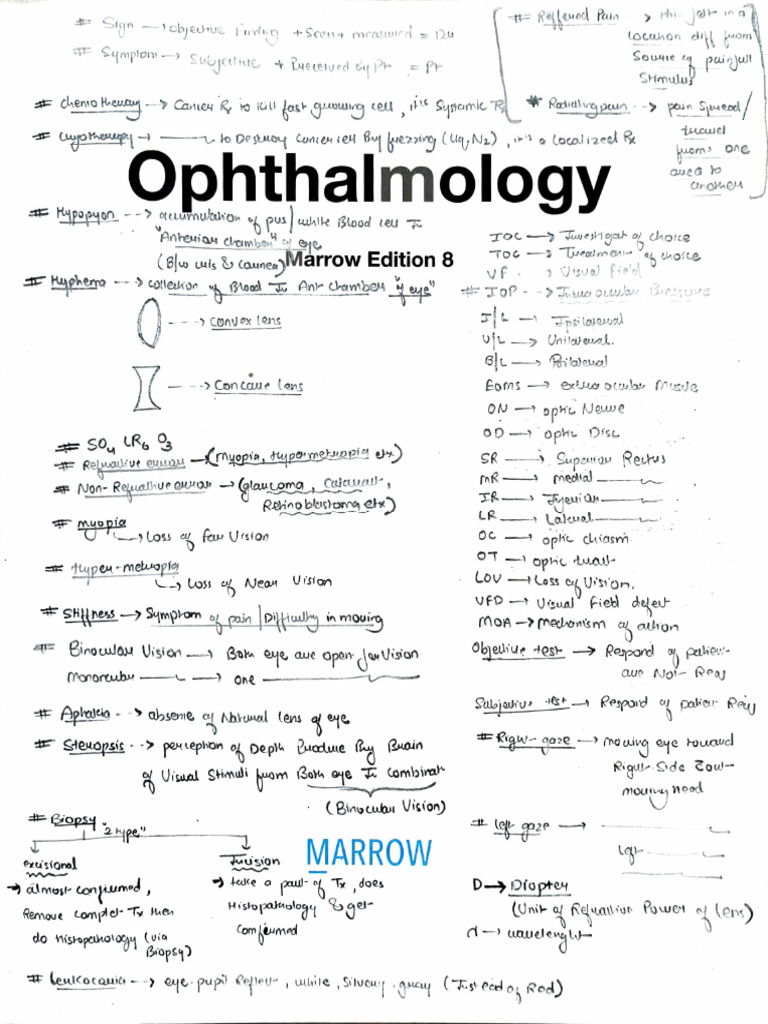 # Sign → objective Finding + Seen + measured = Dr
# Symptom → Subjective + Percieved by Pt = Pt
# Reffered Pain → Pain felt in a
location diff from
Source of painfull
Stimulus
# Chemotherapy → Cancer Rx to kill fast growing cell, it is Systemic Rx
* Radiating pain --> pain spread/
travel
from one
area to
another
# Cryotherapy → —— to Destroy Cancer cell By freezing (Liq. N2), it's a Localized Rx
Ophthalmology
Marrow Edition 8
# Hypopyon --> accumulation of pus/white Blood cell In
"Anterior chamber" of eye
(B/w iris & cornea)
# Hyphema --> collection of Blood In Ant chamber "of eye"
---> Convex lens
---> Concave lens
IOC → Investigat of choice
TOC → Treatment of choice
VF - Visual field
# IOP --> Intra ocular Pressure
I/L → Ipsilateral
U/L → Unilateral.
B/L → Bilateral
EOMs → extra ocular Muscle
ON → optic Nerve
OD → optic Disc
SR → Superior Rectus
MR → medial ——
IR → Inferior ——
LR → Lateral ——
OC → optic chiasm
OT → optic tract
LOV → Loss of Vision.
VFD → Visual field defect
MOA → Mechanism of action
Objective test → Respond of patient
are Not- Req
Subjective test → Respond of patient Req
# Right-gaze → moving eye toward
Right Side
moving head
# left gaze → ——
left ——
D → Diopter
(Unit of Refractive Power of lens)
→ wavelenght
# SO4 LR6 O3
# Refractive error → (myopia, Hypermetropia etx)
# Non-Refractive error → (glaucoma, Cataract,
Retinoblastoma etx)
# myopia
↳ Loss of far Vision
# Hyper-metropia
↳ Loss of Near Vision
# Stiffness → Symptom of pain/Difficulty in moving
# Binocular Vision → Both eye are open for Vision
monorcular —— → one ——
# Aphakia --> absense of Natural lens of eye
# Steriopsis --> perception of Depth Produce By Brain
of Visual Stimuli from Both eye In combinat
(Binocular Vision)
# Biopsy
"2 type"
excisional
→ almost confirmed,
Remove complet Tx then
do histopathology (via
Biopsy)
Incision
→ take a part of Tx, does
Histopathology & get
confirmed
MARROW
# Leukocoria --> eye pupil Reflex, white, Silvery gray (Instead of Red)